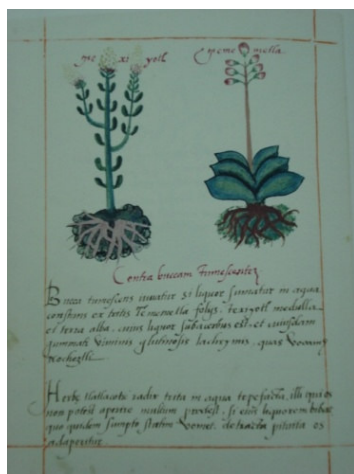 te xi yotl tememetla.
Contra buccam tumescentem
Bucca tumescens iuvatur si liquor sumatur in aqua
constans ex tritis Tememetlæ folijs, texiyotl medulla
et terra alba, cuius liquor subacerbus est: et cuiusdam
gummati viminis glutinosis lachrymis, quas vocamus
Herbæ tlatlacotic radix trita in aqua tepefacta, illi qui os
non potest aperire multum prodest, si eius liquorem bibat
quo quidem sumpto statim vomet, detracta pituita os
adaperitur.